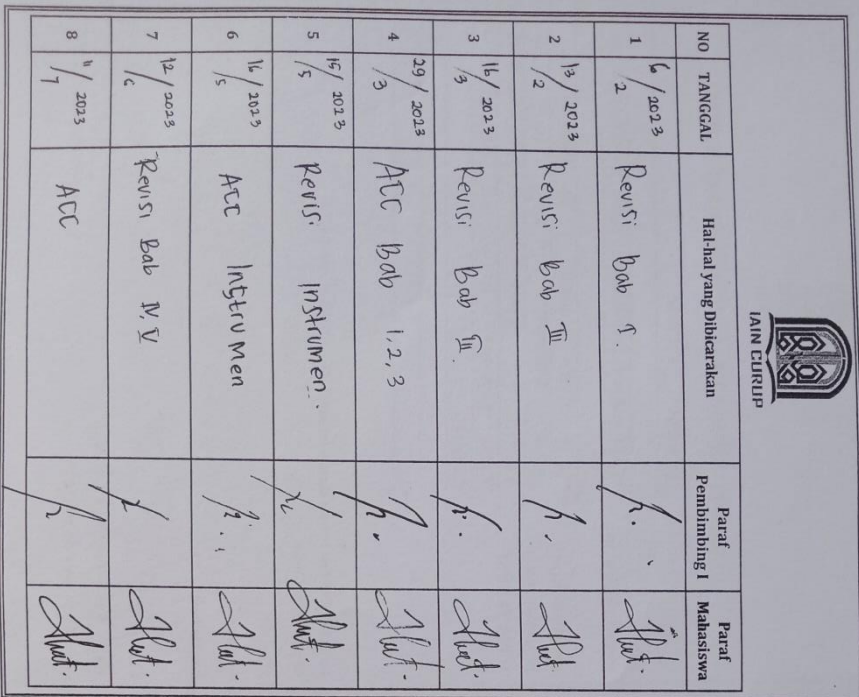 IAIN CURUP
NO TANGGAL Hal-hal yang Dibicarakan Paraf Pembimbing I Paraf Mahasiswa
1 6/2 2023 Revisi Bab I.
2 13/2 2023 Revisi Bab III
3 16/3 2023 Revisi Bab III.
4 29/3 2023 ACC Bab 1,2,3
5 15/5 2023 Revisi Instrumen.
6 16/5 2023 ACC Instrumen
7 12/6 2023 Revisi Bab IV.V
8 11/7 2023 ACC